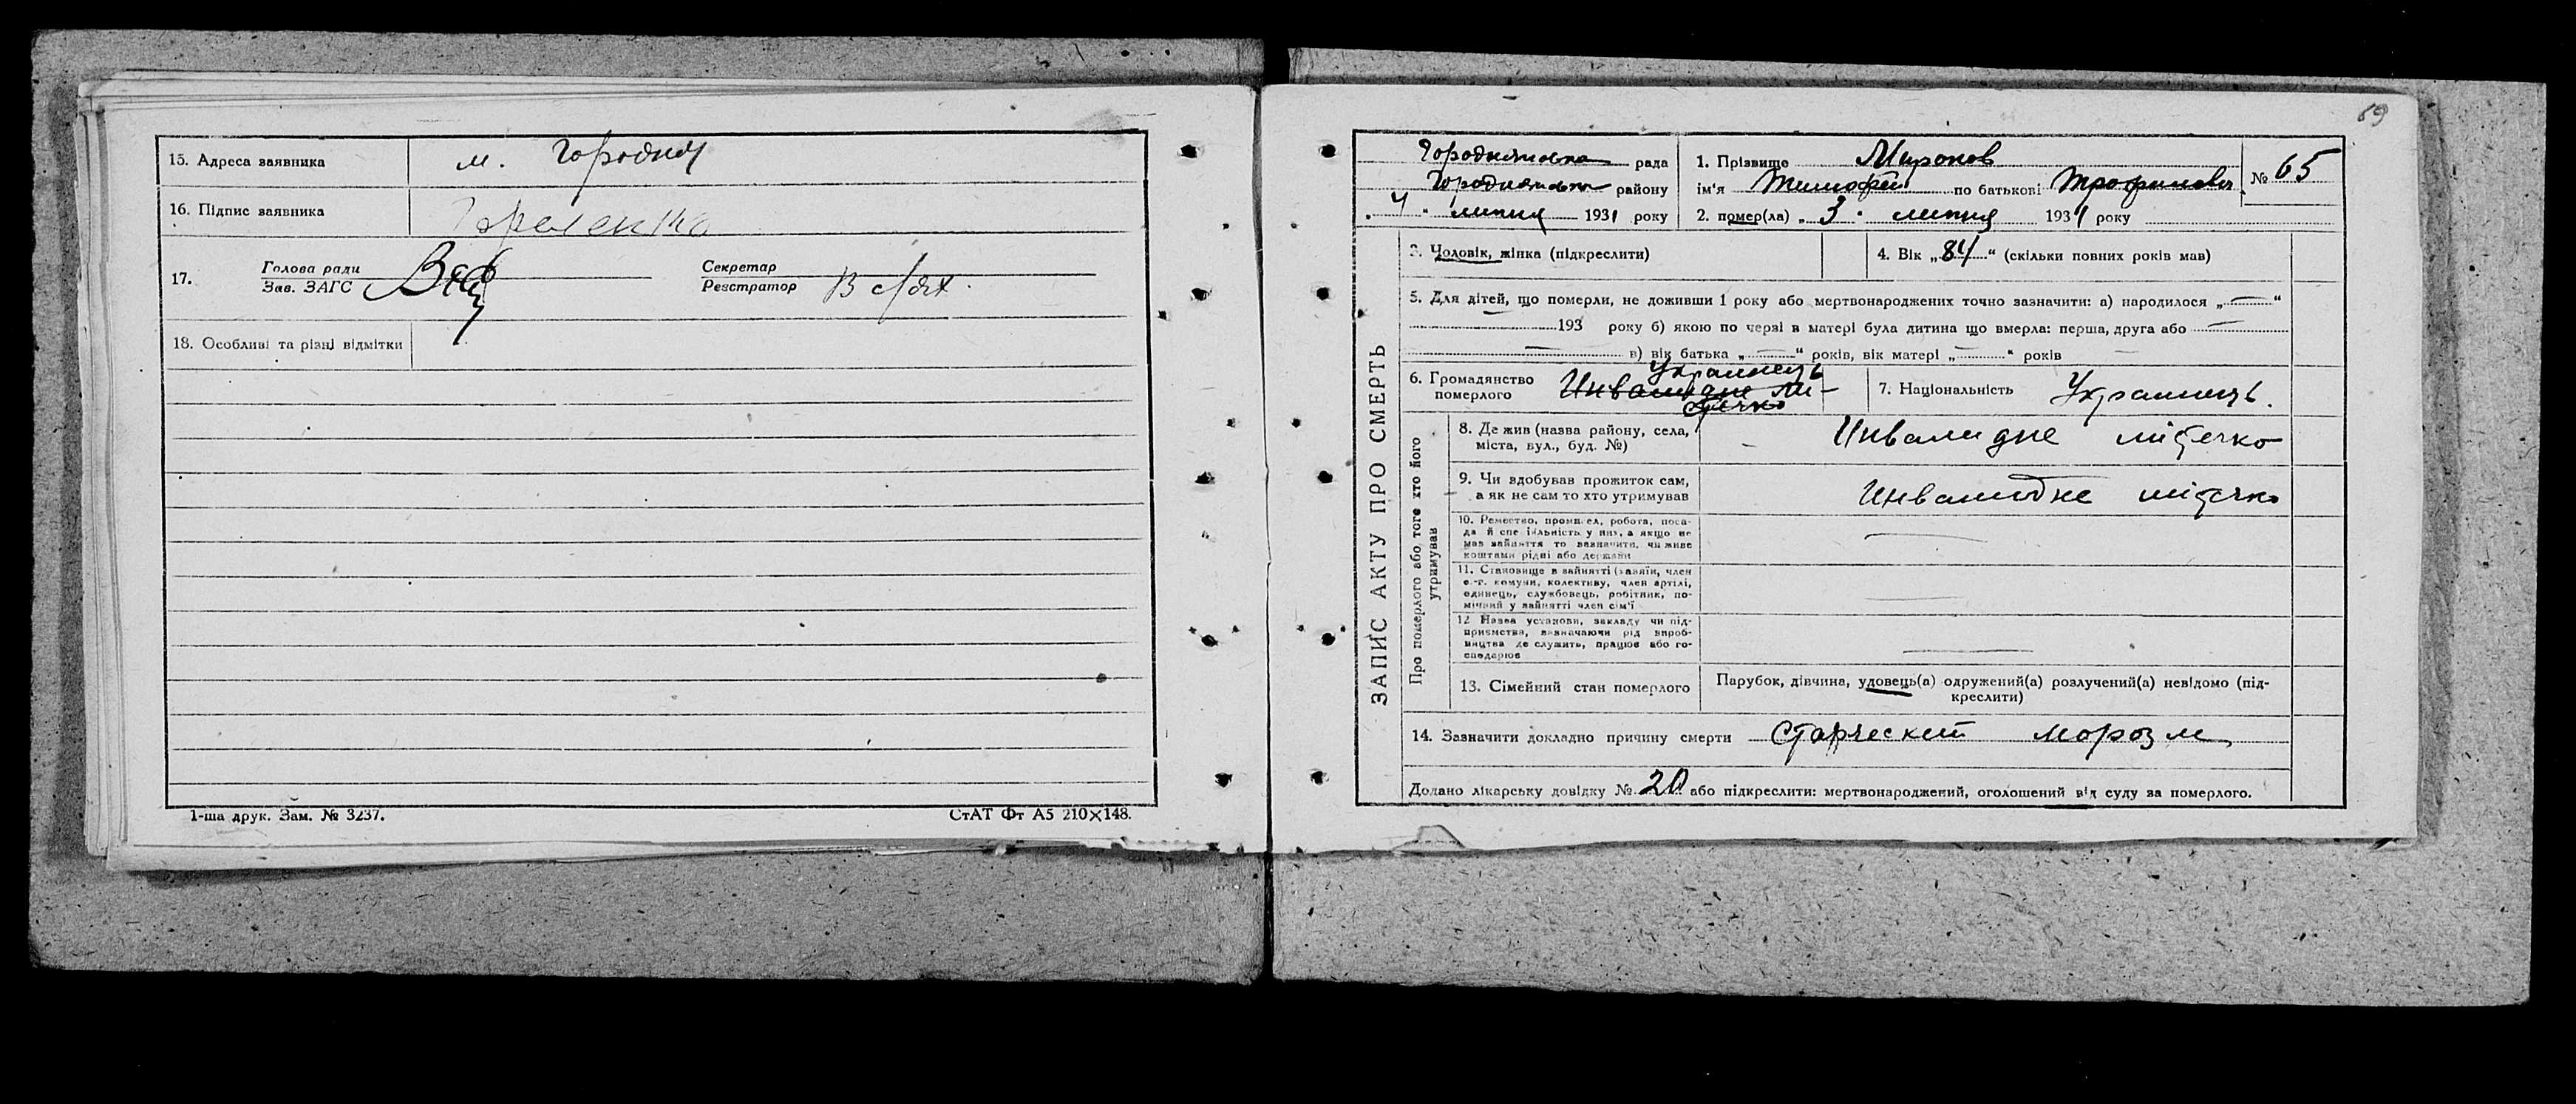 15. Адреса заявника м. Городня
16. Підпис заявника
17. Голова ради Секретар
Зав. ЗАГС Реєстратор
18. Особливі та різні відмітки
1-ша друк. Зам. № 3237. СтАТ Фт А5 210×148.
69
ЗАПИС АКТУ ПРО СМЕРТЬ
Городнянська рада
Городнянського району
„4“ липня 1931 року
1. Прізвище Миронов
ім'я Тимофей по батькові Трофимович
№ 65
2. помер(ла) „3“ липня 1931 року
3. Чоловік, жінка (підкреслити) 4. Вік „84“ (скільки повних років мав)
5. Для дітей, що померли, не доживши 1 року або мертвонароджених точно зазначити: а) народилося „—“
193 року б) якою по черзі в матері була дитина що вмерла: перша, друга або —
— в) вік батька „—“ років, вік матері „—“ років —
6. Громадянство Украинець
померлого Инвалидне мі-
стечко
7. Національність Украинець.
Про померлого або того хто його
утримував
8. Де жив (назва району, села, Инвалидне містечко
міста, вул., буд. №)
9. Чи здобував прожиток сам, Инвалидне містечко
а як не сам то хто утримував
10. Ремество, промисел, робота, поса-
да й спеціяльність у них, а якщо не
мав зайняття то зазначити, чи живе
коштами рідні або держави —
11. Становище в зайнятті (хазяїн, член
с.-г. комуни, колективу, член артілі,
одинець, службовець, робітник, по-
мічний у зайнятті член сім'ї —
12 Назва установи, закладу чи під-
приємства, визначаючи рід вироб-
ництва де служить, працює або го-
сподарює —
13. Сімейний стан померлого Парубок, дівчина, удовець(а) одружений(а) розлучений(а) невідомо (під-
креслити)
14. Зазначити докладно причину смерти Старческий морозм
Додано лікарську довідку № 20 або підкреслити: мертвонароджений, оголошений від суду за померлого.